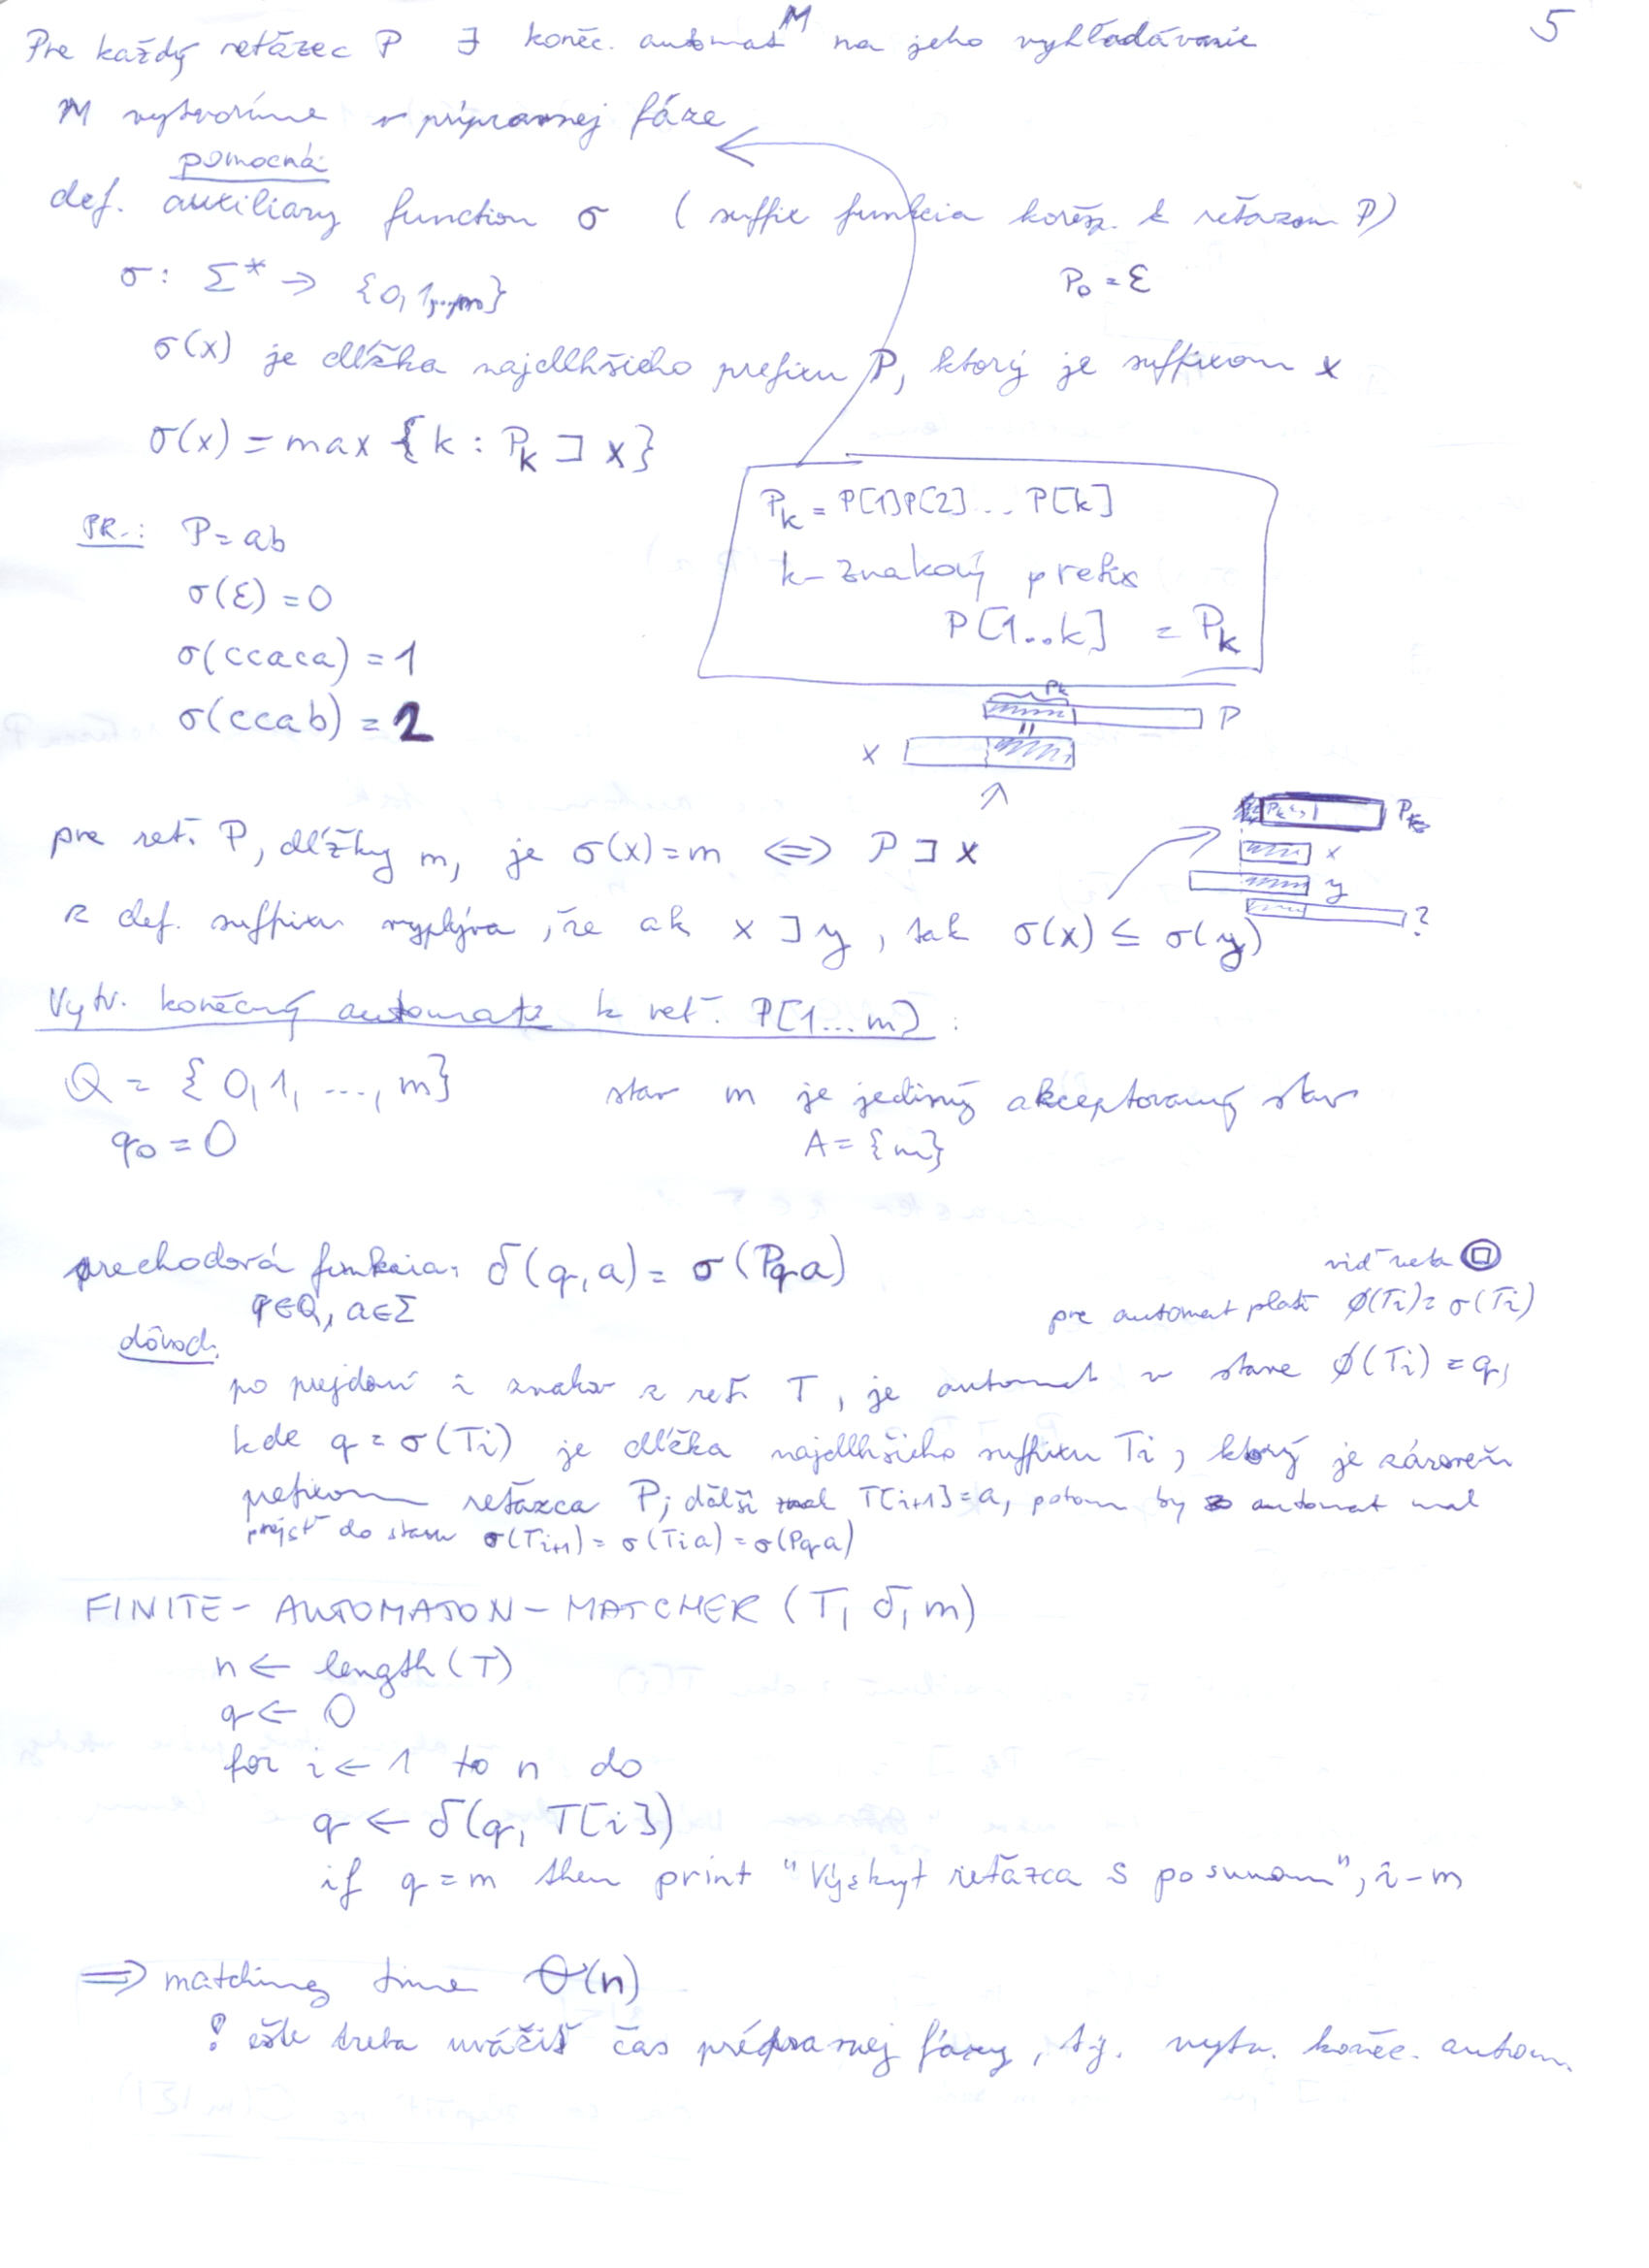 5
Pre každý reťazec P ∃ koneč. automat M na jeho vyhľadávanie
M vytvoríme v prípravnej fáze
pomocná
def. auxiliary function σ ( suffix funkcia koreš. k reťazcu P)
σ: Σ* → {0,1,...,m}
P₀ = ε
σ(x) je dĺžka najdlhšieho prefixu P, ktorý je suffixom x
σ(x) = max {k : Pk ⊐ x}
Pk = P[1]P[2]... P[k]
k-znakový prefix
P[1..k] = Pk
PR.: P=ab
σ(ε) = 0
σ(ccaca) = 1
σ(ccab) = 2
Pk
P
=
x
pre reť. P, dĺžky m, je σ(x)=m ⇔ P ⊐ x
x
y
?
z def. suffixu vyplýva, že ak x ⊐ y, tak σ(x) ≤ σ(y)
Vytv. konečný automat k reť. P[1...m] :
Q = {0,1, ..., m} stav m je jediný akceptovaný stav
q₀ = 0 A = {m}
prechodová funkcia: δ(q,a) = σ(Pqa)
q∈Q, a∈Σ
viď veta
pre automat platí ϕ(Ti) = σ(Ti)
dôvod:
po prejdení i znakov z reť. T, je automat v stave ϕ(Ti) = q,
kde q = σ(Ti) je dĺžka najdlhšieho suffixu Ti, ktorý je zároveň
prefixom reťazca P; ďalší znak T[i+1]=a, potom by automat mal
prejsť do stavu σ(Ti+1) = σ(Tia) = σ(Pqa)
FINITE-AUTOMATON-MATCHER (T, δ, m)
n ← length(T)
q ← 0
for i ← 1 to n do
q ← δ(q, T[i])
if q = m then print "Výskyt reťazca s posunom", i-m
⇒ matching time Θ(n)
! ešte treba uvážiť čas prípravnej fázy, t.j. vytv. koneč. autom.